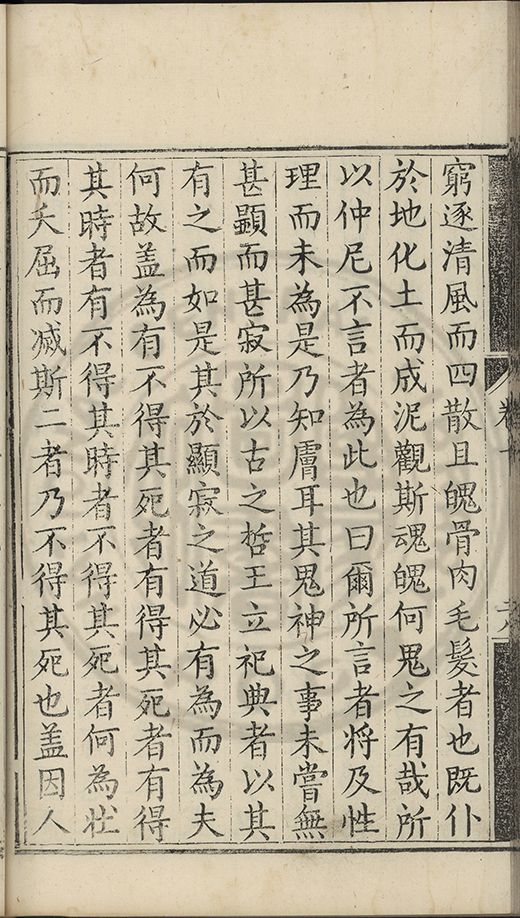 窮逐清風而四散且魄骨肉毛髮者也既仆
於地化土而成泥觀斯魂魄何鬼之有哉所
以仲尼不言者為此也曰爾所言者將及性
理而未為是乃知膚耳其鬼神之事未嘗無
甚顯而甚寂所以古之哲王立祀典者以其
有之而如是其於顯寂之道必有為而為夫
何故盖為有不得其死者有得其死者有得
其時者有不得其時者不得其死者何為壮
而夭屈而滅斯二者乃不得其死也盖因人
卷十